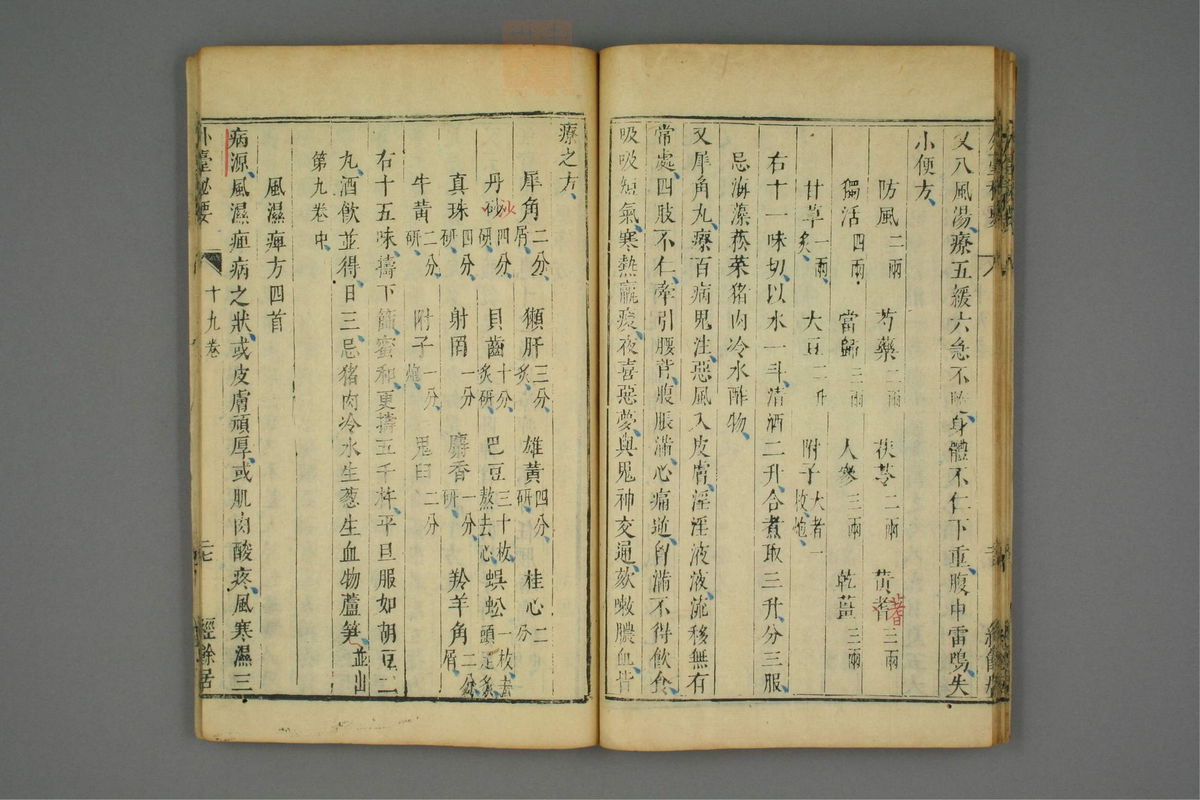 又八風湯療五緩六急不隨身體不仁下重腹中雷鳴失
小便方
防風二兩 芍藥二兩 茯苓二兩 黃耆三兩
獨活四兩 當歸三兩 人參三兩 乾薑三兩
甘草一兩炙 大豆二升 附子大者一枚炮
右十一味切以水一斗清酒二升合煮取三升分三服
忌海藻菘菜猪肉冷水酢物
又犀角丸療百病鬼注惡風入皮膚淫淫液液流移無有
常處四肢不仁牽引腰背腹脹滿心痛逆胷滿不得飲食
吸吸短氣寒熱羸瘦夜喜惡夢與鬼神交通欬嗽膿血皆
療之方
犀角二分屑 獺肝三分炙 雄黃四分研 桂心二分
丹砂四分研 貝齒十分炙研 巴豆三十枚熬去心 蜈蚣一枚去頭足炙
真珠四分研 射罔一分 麝香一分研 羚羊角二分屑
牛黃二分研 附子一分炮 鬼臼二分
右十五味擣下篩蜜和更擣五千杵平旦服如胡豆二
丸酒飲並得日三忌猪肉冷水生葱生血物蘆笋並出
第九卷中
風濕痺方四首
病源風濕痺病之狀或皮膚頑厚或肌肉酸疼風寒濕三
外臺祕要
十九卷
經餘居